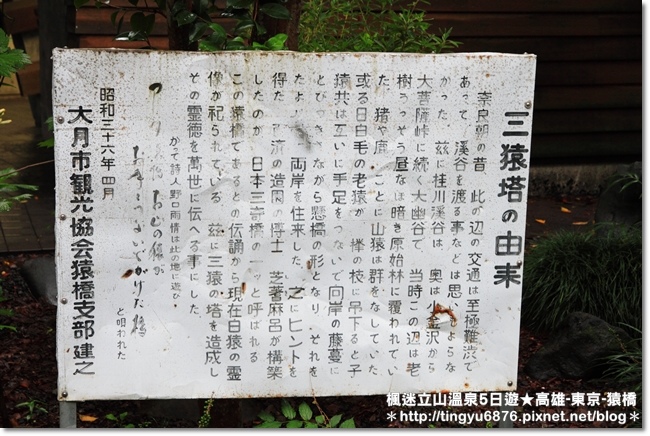 三猿塔の由来
奈良朝の昔 此の辺の交通は至極難渋で
あって 溪谷を渡る事などは思いもよらな
かった 玆に桂川溪谷は、奥は小金沢から
大菩薩峠に続く大幽谷で 当時この辺は老
樹うっそう昼なほ暗き原始林に覆われてい
た 猪や鹿 ことに山猿は群をなしていた
或る日白毛の老猿が 欅の枝に吊下ると子
猿共は互いに手足をつないで向岸の藤蔓に
とびつき ながら懸橋の形となり それを
たよ 両岸を往来した 之にヒントを
得た 済の造園の博士 芝耆麻呂が構築
したのが 日本三奇橋の一ッと呼ばれる
この猿橋であるとの伝誦から現在白猿の霊
像が祀られている 玆に三猿の塔を造成し
その霊徳を萬世に伝へる事にした
かって詩人野口雨情は此の地に遊び・
の猿が
かりた橋
と唄われた
昭和三十六年四月
大月市観光協会猿橋支部建之
楓迷立山溫泉5日遊★高雄-東京-猿橋
＊http://tingyu6876.pixnet.net/blog＊